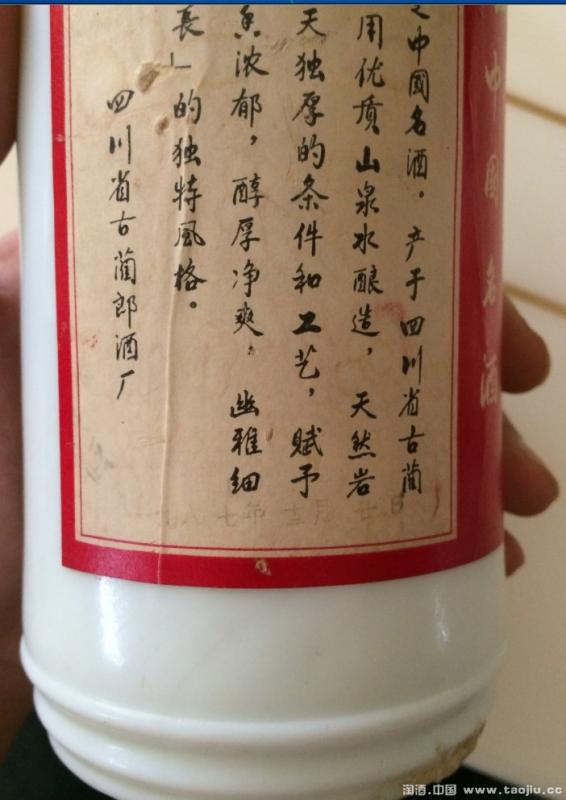 中国名酒
中國名酒。产于四川省古蔺
用优质山泉水酿造，天然岩
天独厚的条件和工艺，赋予
浓郁，醇厚净爽，幽雅细
長」的独特風格。
四川省古蔺郎酒厂
八七年十二月廿日
淘酒.中国 www.taojiu.cc